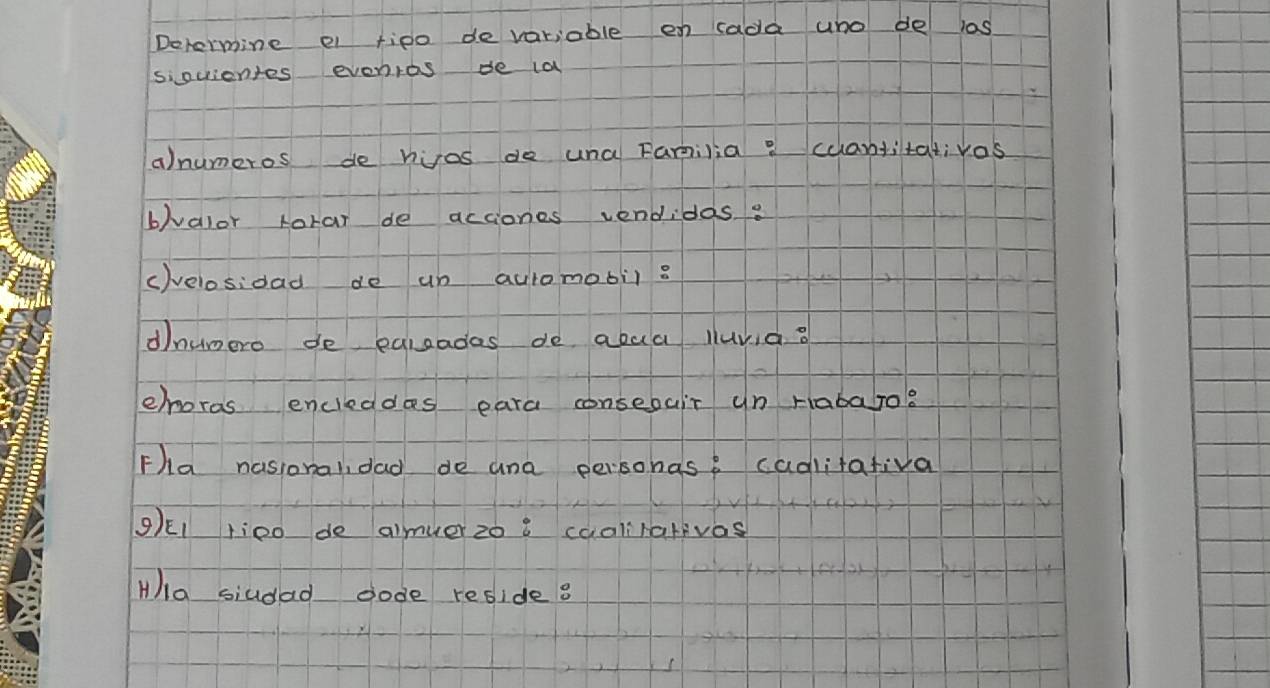 Determine el tipo de variable en cada uno de las
siguientes eventos de la
a) numeros de hijos de una Familia: cuantitativas
b) valor total de acciones vendidas:
c) velosidad de un automobil:
d) numero de pulgadas de agua lluvia:
e) horas encleadas para conseguir un trabajo:
F) la nasionalidad de una personas: cualitativa
g) El tipo de almuerzo: cualitativas
H) la siudad dode reside: